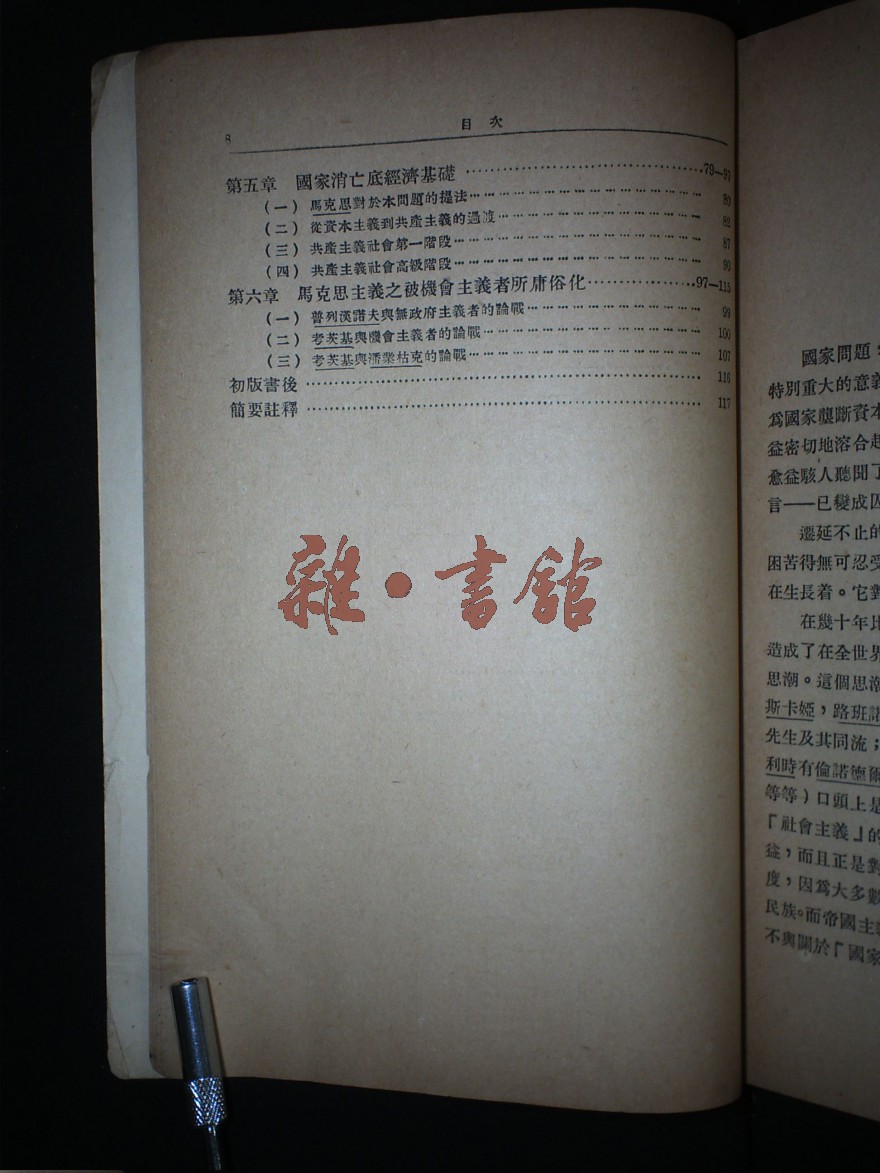 8
目次
第五章 國家消亡底經濟基礎 …………79—97
(一) 馬克思對於本問題的提法………… 80
(二) 從資本主義到共產主義的過渡………… 82
(三) 共產主義社會第一階段………… 87
(四) 共產主義社會高級階段………… 90
第六章 馬克思主義之被機會主義者所庸俗化…………97—115
(一) 普列漢諾夫與無政府主義者的論戰………… 99
(二) 考茨基與機會主義者的論戰………… 100
(三) 考茨基與潘業枯克的論戰………… 107
初版書後………… 116
簡要註釋………… 117
雜·書館
國家問題
特別重大的意義
爲國家壟斷資本
益密切地溶合起
愈益駭人聽聞了
言——已變成囚
遷延不止的
困苦得無可忍受
在生長着。它對
在幾十年比
造成了在全世界
思潮。這個思潮
斯卡婭,路班諾
先生及其同流;
利時有倫諾德爾
等等)口頭上是
『社會主義』的
益,而且正是對
度,因爲大多數
民族。而帝國主義
不與關於『國家